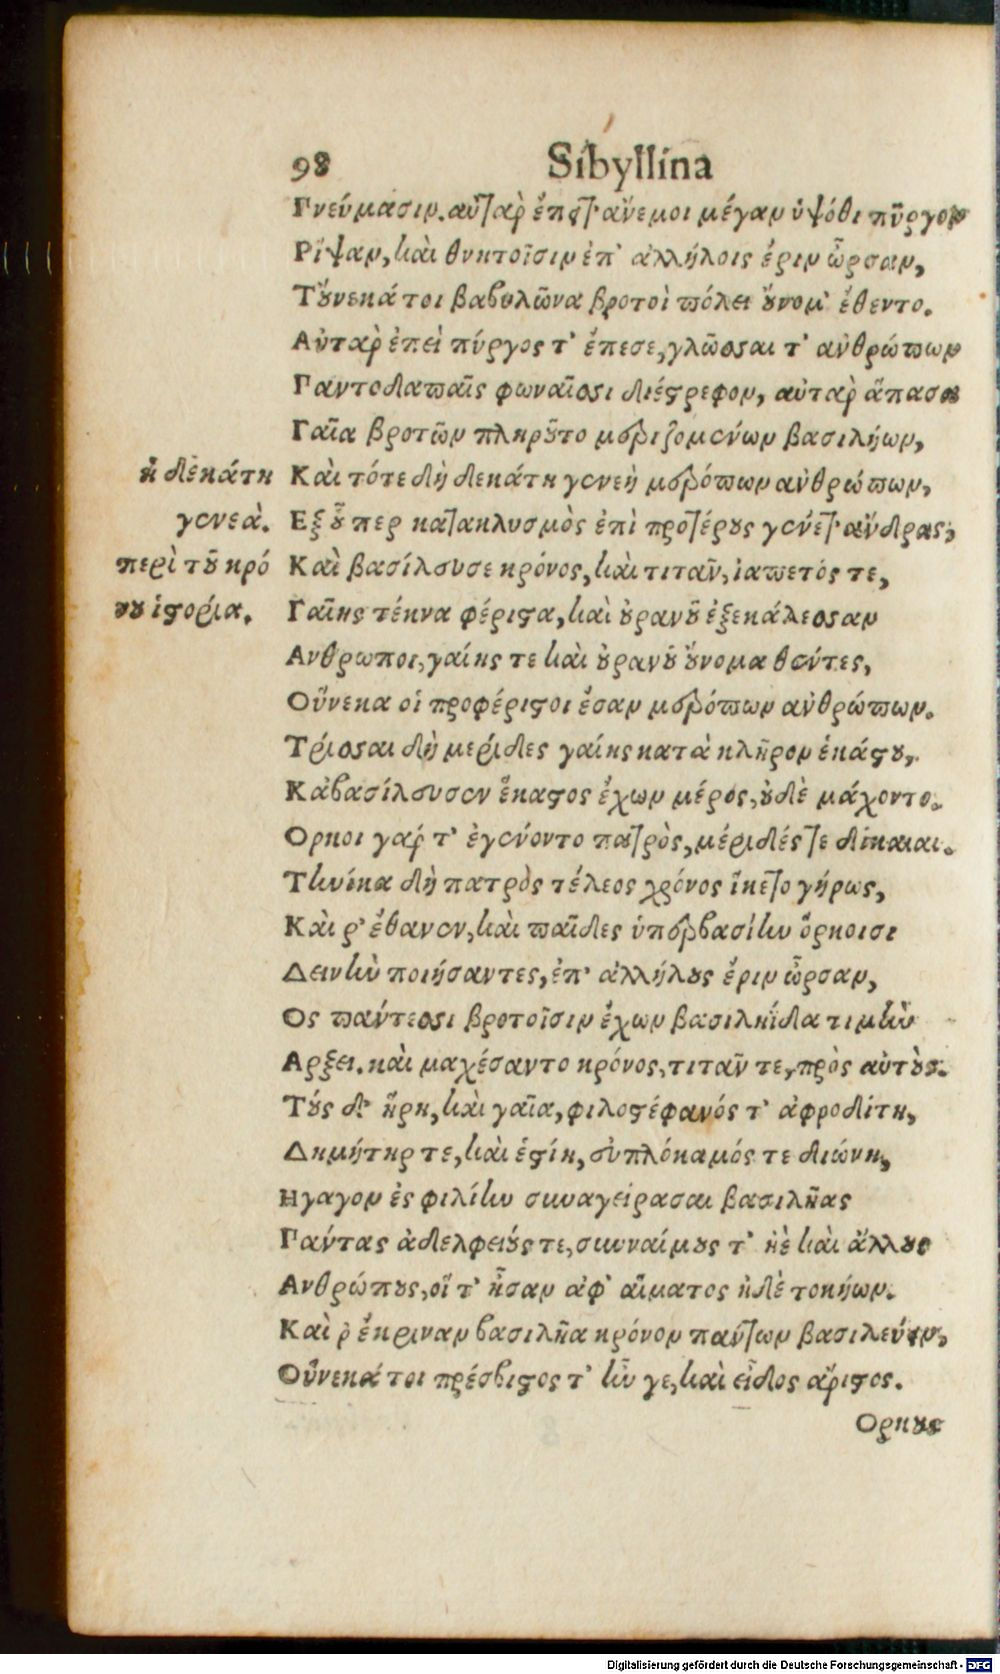 98 Sibyllina
Πνεύμασιν. αὐτὰρ ἔπειτ' ἄνεμοι μέγαν ὑψόθι πῦργον
Ρίψαν, καὶ θνητοῖσιν ἐπ' ἀλλήλοις ἔριν ὦρσαν,
Τοὔνεκά τοι βαβυλῶνα βροτοὶ πόλει οὔνομ' ἔθεντο.
Αὐτὰρ ἐπεὶ πύργος τ' ἔπεσε, γλῶσσαι τ' ἀνθρώπων
Παντοδαπαῖς φωναῖσι διέστρεφον, αὐτὰρ ἅπασα
Γαῖα βροτῶν πληροῦτο μεριζομένων βασιλήων,
ἡ δεκάτη Καὶ τότε δὴ δεκάτη γενεὴ μερόπων ἀνθρώπων,
γενεὰ. Εξ οὗ περ κατακλυσμὸς ἐπὶ προτέρους γένετ' ἄνδρας,
περὶ τοῦ κρό Καὶ βασίλευσε κρόνος, καὶ τιτᾶν, ἰαπετός τε,
νου ἱστορία. Γαίης τέκνα φέριστα, καὶ οὐρανοῦ ἐξεκάλεσσαν
Ανθρωποι, γαίης τε καὶ οὐρανοῦ οὔνομα θέντες,
Οὕνεκα οἱ προφέριστοι ἔσαν μερόπων ἀνθρώπων.
Τρίσσαι δὴ μερίδες γαίης κατὰ κλῆρον ἑκάστου,
Κἀβασίλευσεν ἕκαστος ἔχων μέρος, οὐδὲ μάχοντο.
Ορκοι γάρ τ' ἐγένοντο πατρὸς, μέριδές τε δίκαιαι.
Τηνίκα δὴ πατρὸς τέλεος χρόνος ἵκετο γήρως,
Καὶ ῥ' ἔθανεν, καὶ παῖδες ὑπερβασίην ὅρκοισι
Δεινὴν ποιήσαντες, ἐπ' ἀλλήλους ἔριν ὦρσαν,
Ος πάντεσσι βροτοῖσιν ἔχων βασιληΐδα τιμὴν
Αρξει. καὶ μαχέσαντο κρόνος, τιτᾶν τε, πρὸς αὐτούς.
Τούς δ' ἥρη, καὶ γαῖα, φιλοστέφανός τ' ἀφροδίτη,
Δημήτηρ τε, καὶ ἑστίη, εὐπλόκαμός τε διώνη,
Ηγαγον ἐς φιλίην συναγείρασαι βασιλῆας
Πάντας ἀδελφειούς τε, συναίμους τ' ἠὲ καὶ ἄλλους
Ανθρώπους, οἵ τ' ἦσαν ἀφ' αἵματος ἠδὲ τοκήων.
Καὶ ῥ' ἔκριναν βασιλῆα κρόνον πάντων βασιλεύειν,
Οὕνεκά τοι πρέσβιστός τ' ἦν γε, καὶ εἶδος ἄριστος.
Ορκους
Digitalisierung gefördert durch die Deutsche Forschungsgemeinschaft - DFG